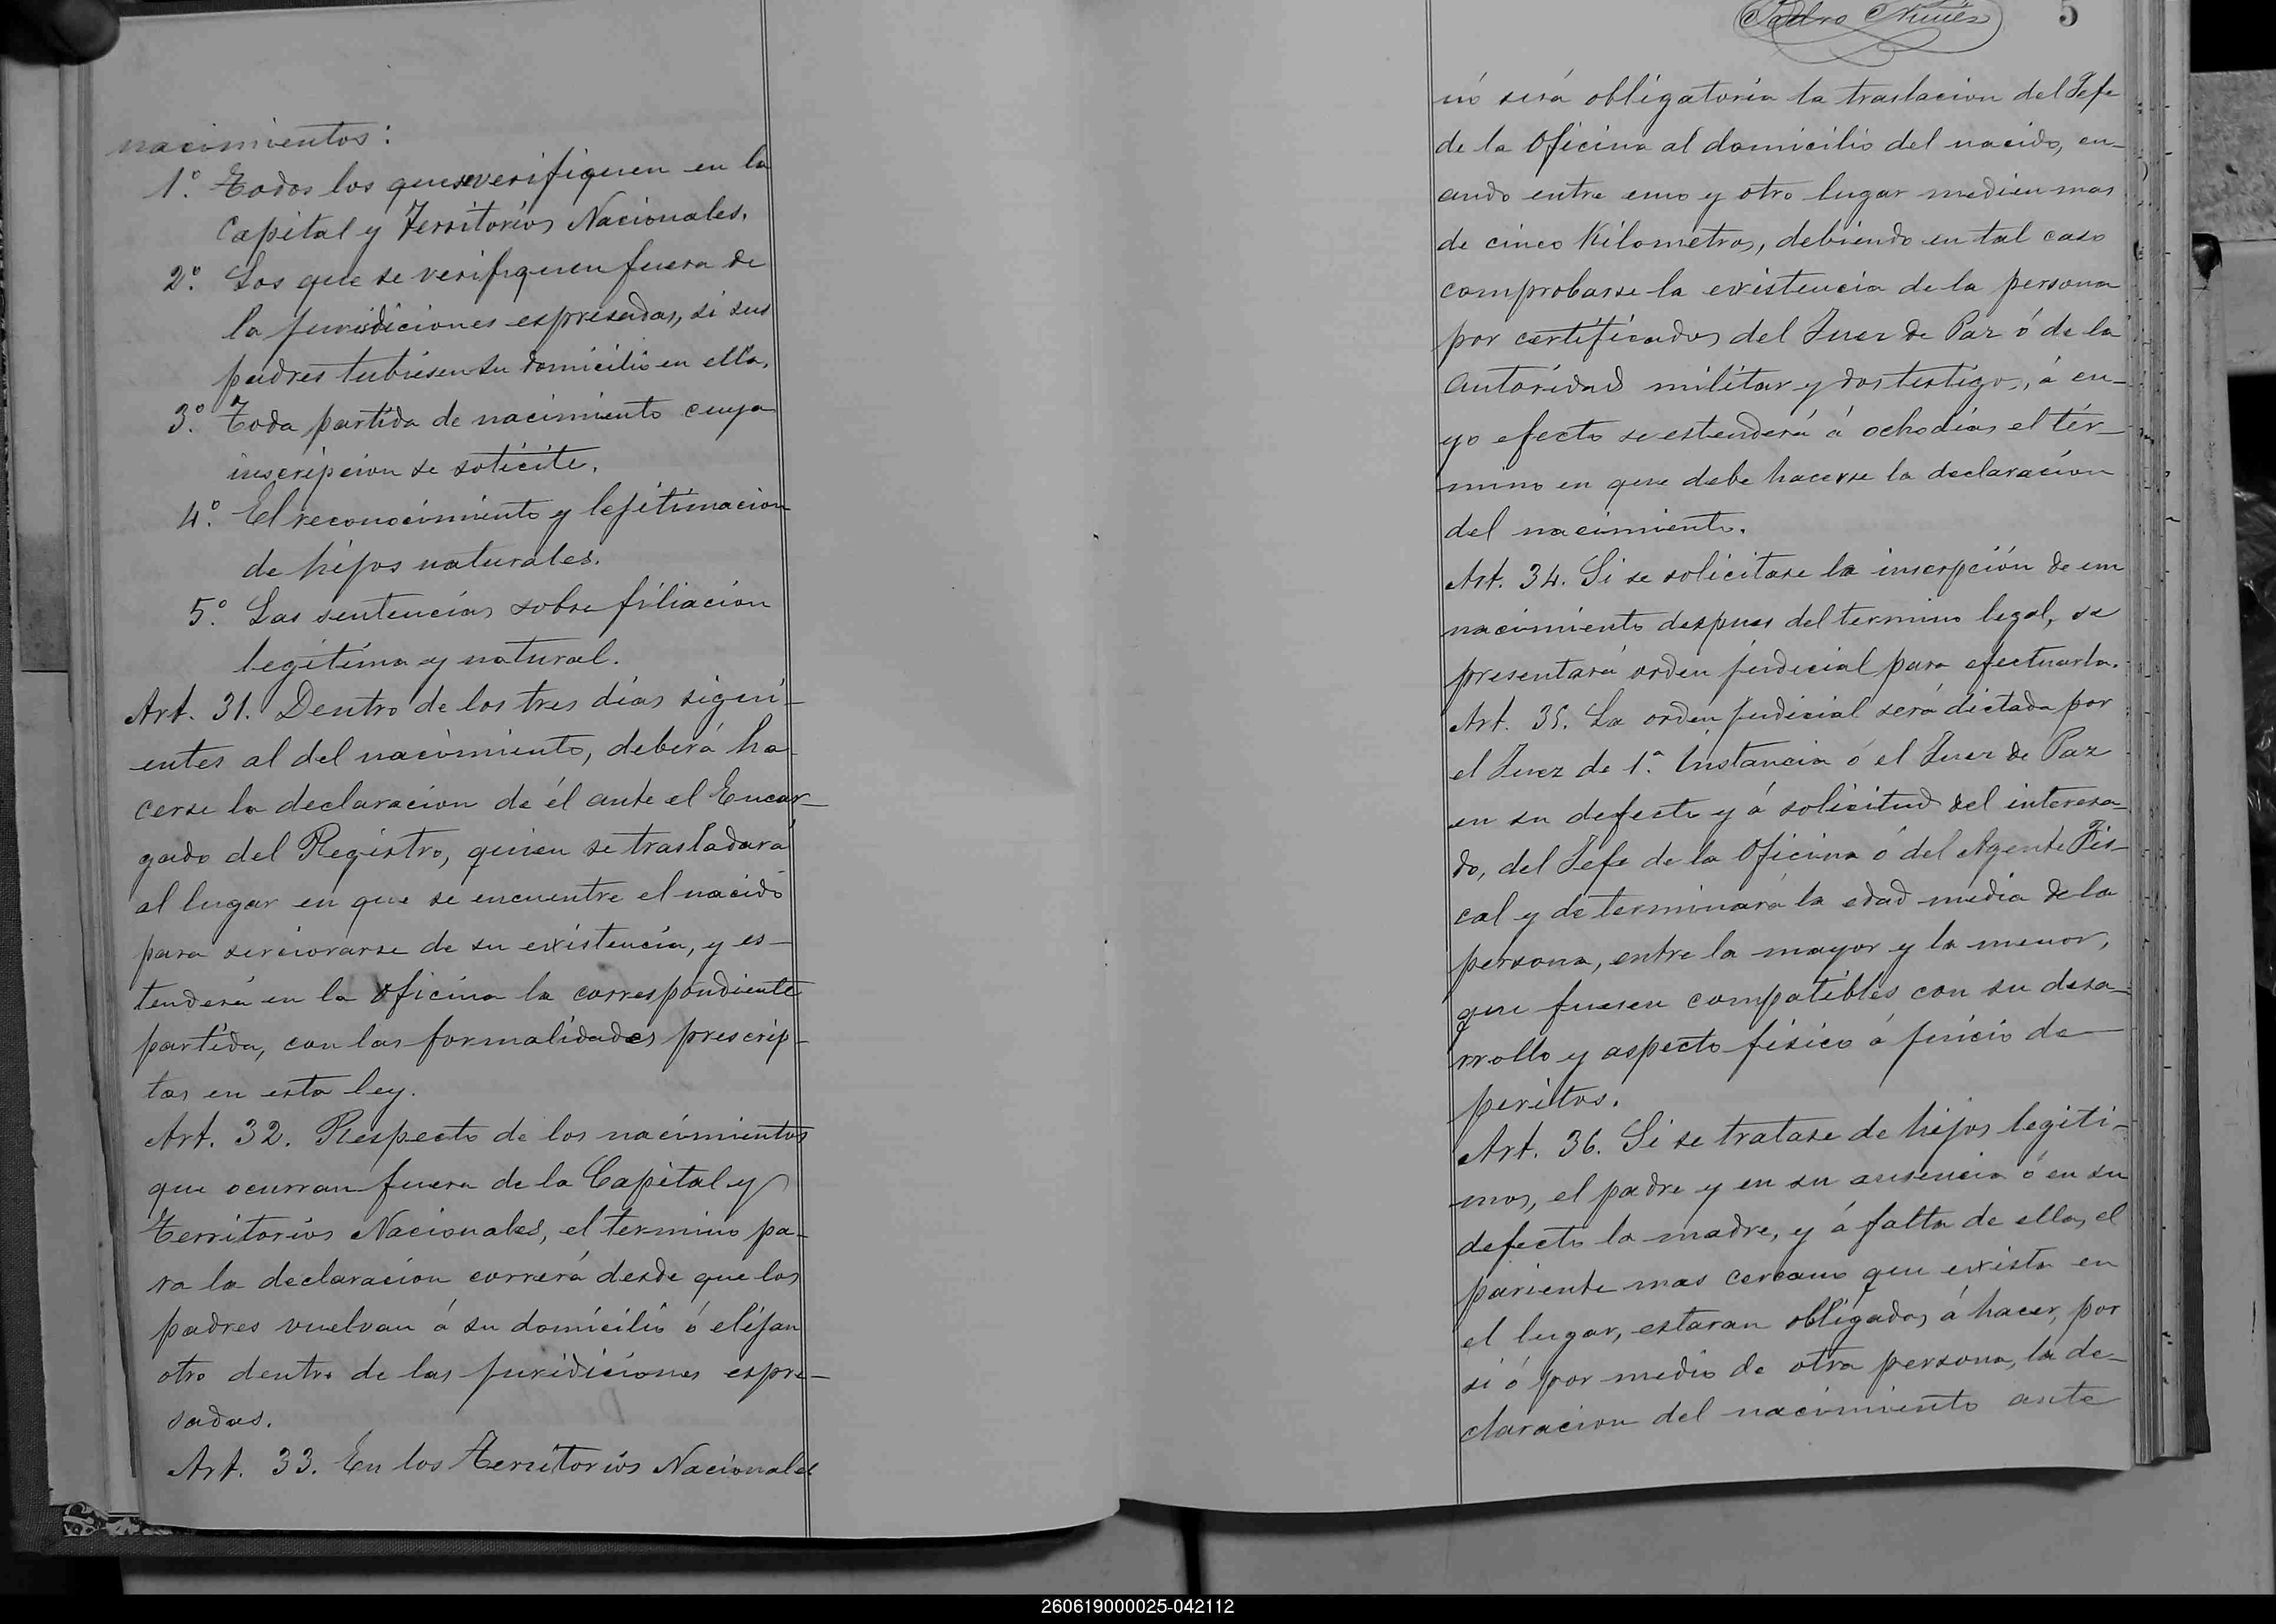 nacimientos:
1º. Todos los que se verifiquen en la
Capital y Territorios Nacionales.
2º. Los que se verifiquen fuera de
la juridiciones espresadas, si sus
padres tubiesen su domicilio en ella.
3º. Toda partida de nacimiento cuya
inscripcion se solicite.
4º. El reconocimiento y lejitimacion
de hijos naturales.
5º Las sentencias sobre filiacion
legitima y natural.
Art. 31. Dentro de los tres dias sigui-
entes al del nacimiento, deberá ha-
cerse la declaracion de él ante el Encar-
gado del Registro, quien se trasladará
al lugar en que se encuentre el nacido
para serciorarse de su existencia, y es-
tenderá en la oficina la correspondiente
partida, con las formalidades prescrip-
tas en esta ley.
Art. 32. Respecto de los nacimientos
que ocurran fuera de la Capital y
Territorios Nacionales, el termino pa-
ra la declaracion correrá desde que los
padres vuelvan á su domicilio ó elijan
otro dentro de las juridiciones espre-
sadas.
Art. 33. En los Territorios Nacionales
Pedro Nuñes 5
nó será obligatoria la traslacion del Jefe
de la Oficina al domicilio del nacido, cu-
ando entre uno y otro lugar medien mas
de cinco Kilometros, debiendo en tal caso
comprobarse la existencia de la persona
por certificados del Juez de Paz ó de la
autoridad militar y dos testigos, á cu-
yo efecto se estenderá á ocho dias el tér-
mino en que debe hacerse la declaracion
del nacimiento.
Art. 34. Si se solicitase la inscrpción de un
nacimiento despues del termino legal, se
presentará orden judicial para efectuarla.
Art. 35. La orden judicial será dictada por
el Juez de 1ª. Instancia ó el Juez de Paz
en su defecto y á solicitud del interesa-
do, del Jefe de la Oficina ó del Agente Fis-
cal y determinará la edad media de la
persona, entre la mayor y la menor,
que fuesen compatibles con su desa-
rrollo y aspecto fisico á juicio de
peritos.
Art. 36. Si se tratase de hijos legiti-
mos, el padre y en su ausencia ó en su
defecto la madre, y á falta de ellos, el
pariente mas cercano que exista en
el lugar, estaran obligados á hacer, por
si ó por medio de otra persona, la de-
claracion del nacimiento ante
260619000025-042112